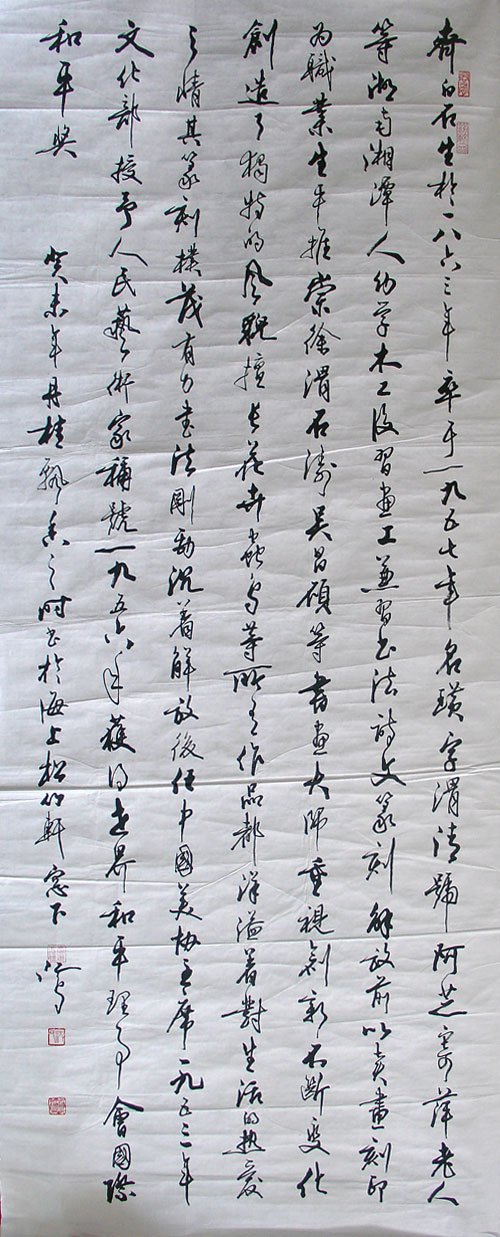 齊白石生於一八六三年卒于一九五七年名璜字渭清號阿芝寄萍老人
等湖南湘潭人幼學木工後習畫工兼習书法詩文篆刻解放前以賣畫刻印
为職業生平推崇徐渭石濤吴昌碩等書画大師重視創新不斷变化
創造了獨特的風貌擅长花卉蟲鸟等所有作品都洋溢着對生活的热爱
之情其篆刻樸茂有力书法剛勁沉着解放後任中國美协主席一九五三年
文化部授予人民藝術家稱號一九五六年獲得世界和平理事會國際
和平奖
癸未年丹桂飄香之时书於海上松竹軒窓下